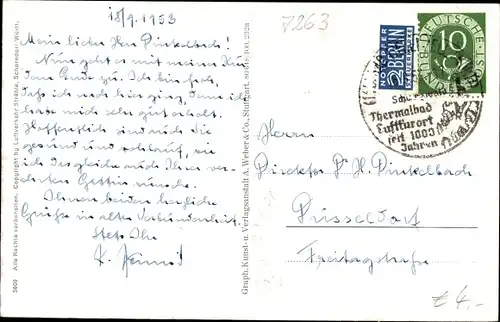 18/9. 1953
Mein lieber Herr Dinkelbach!
Nun geht es mit meiner Kur
dem Ende zu. Ich bin froh,
daß ich nach hier ging, denn ich
habe mich sehr gut erholt.
Hoffentlich sind auch Sie
gesund und
ich desgleichen Ihrer ver-
ehrten Gattin wünsche.
Ihnen beiden herzliche
Grüße in alter Verbundenheit.
Stets Ihr
3809 Alle Rechte vorbehalten. Copyright by Luftverkehr Strähle, Schorndorf Württ.
Graph. Kunst- u. Verlagsanstalt A. Weber & Co., Stuttgart,
7263
NOTOPFER
2 BERLIN
STEUERMARKE
DEUTSCHE
BUNDESPOST
10
Thermalbad
Luftkurort
seit 1000
Jahren
Herrn
Direktor Dr H. Dinkelbach
Düsseldorf
Freitagstraße
€ 4,-